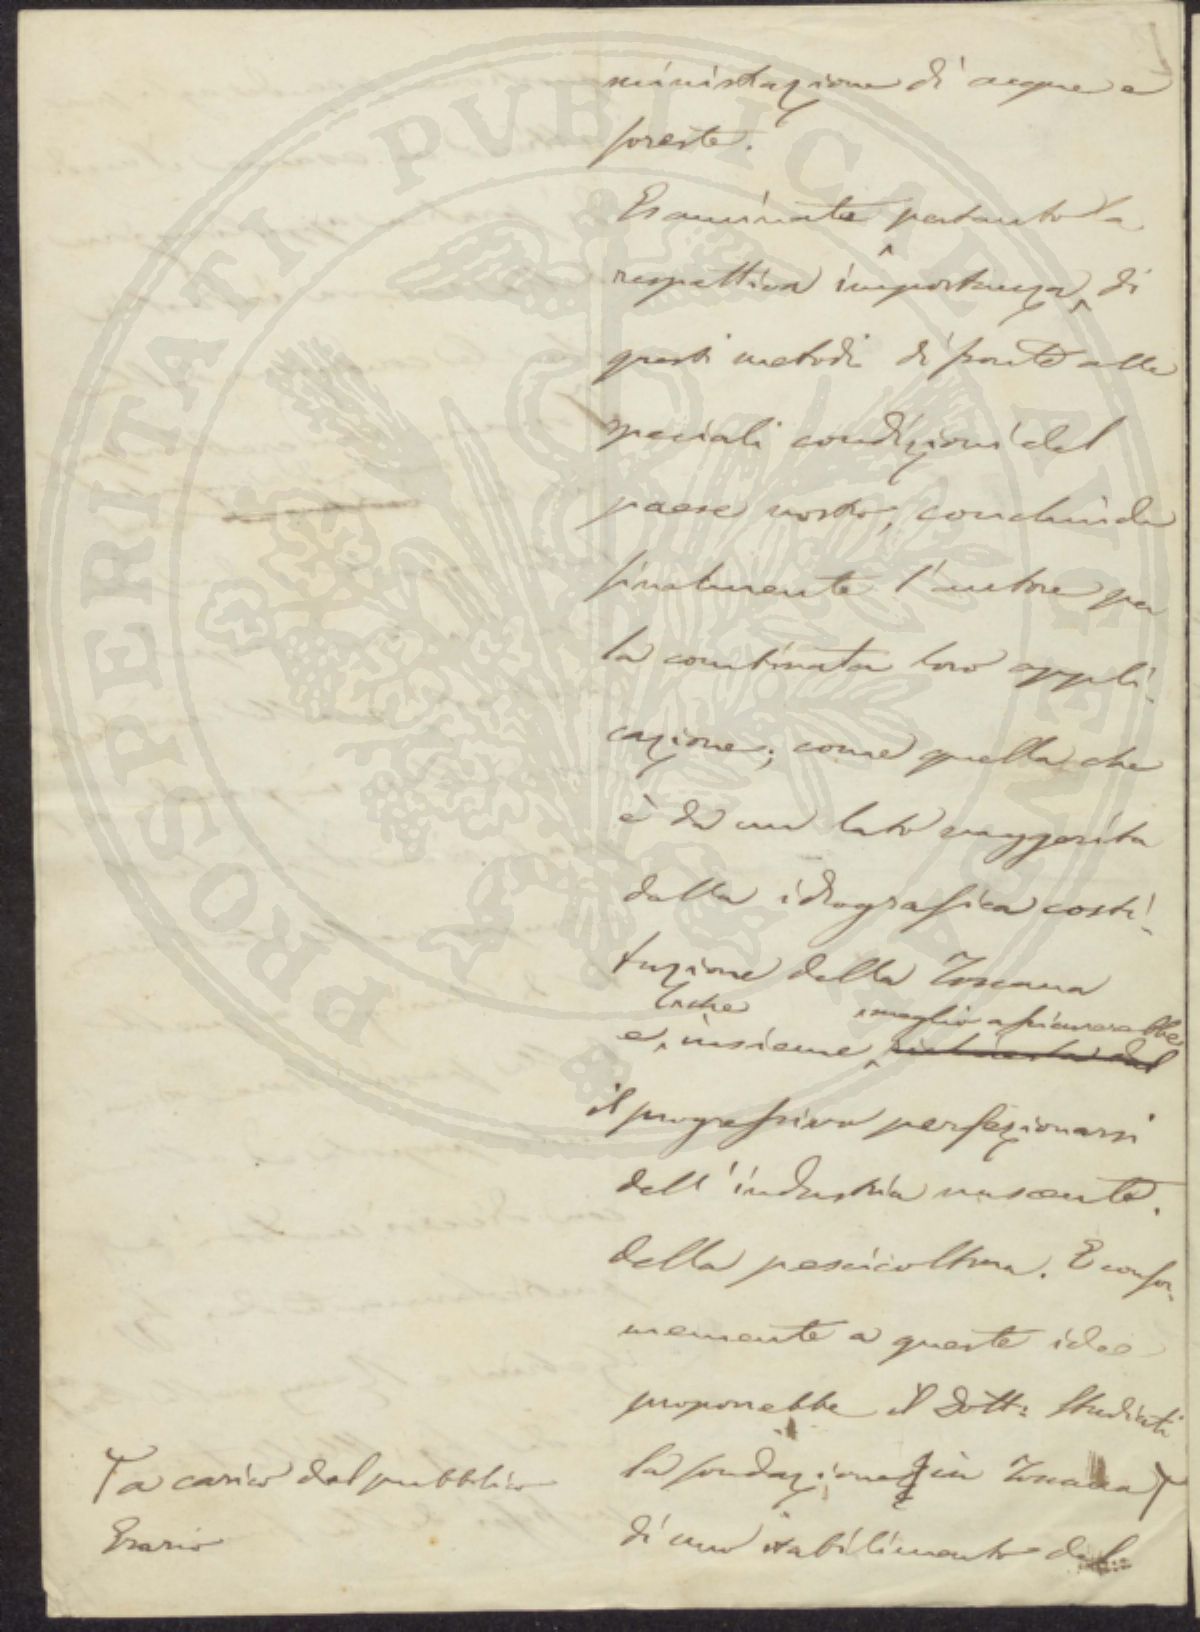 ministrazione di acque e
foreste.
Esaminate pertanto la
respettiva importanza di
questi metodi di fronte alle
speciali condizioni del
paese nostro, conchiude
finalmente l'autore per
la combinata loro appli-
cazione; come quella che
è da un lato suggerita
dalla idrografica costi-
tuzione della Toscana
che meglio assicurerebbe
e, insieme, richiesta dal
il progressivo perfezionarsi
dell'industria nascente.
della pescicoltura. E confor-
memente a queste idee
proporrebbe il Dott: Studiati
la fondazione in Toscana
di uno stabilimento del
a carico del pubblico
Erario
PROSPERITATI PVBLICAE AVGENDAE